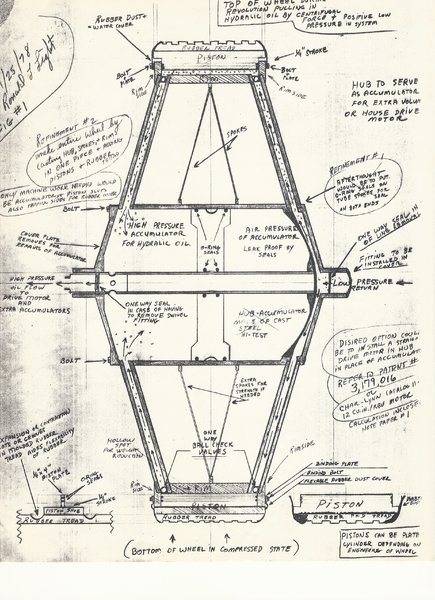 TOP OF WHEEL DURING
REVOLUTION PULLING IN
HYDRALIC OIL BY CENTRIFUGAL
FORCE + POSITIVE LOW
PRESSURE IN SYSTEM
RUBBER DUST +
WATER COVER
RUBBER TREAD
PISTON
1/4" STROKE
BOLT
PLATE
BOLT
PLATE
RIM
SIDE
RIMSIDE
FIG #1
HUB TO SERVE
AS ACCUMULATOR
FOR EXTRA VOLUM
OR HOUSE DRIVE
MOTOR
REFINEMENT #2
make entire wheel by
casting HUB, SPOKES + RIMS
IN ONE PIECE + ADDING
PISTONS + RUBBER
ONLY MACHINE WORK NEEDED WOULD
BE ACCUMULATORS, PISTON SLOTS
ALSO
SPOKES
REFINEMENT #1
AFTERTHOUGHT
WOULD BE TO PUT
O-RING SEALS ON
TUBE SPOKES FOR
SEAL
ON BOTH ENDS
BOLT
HIGH PRESSURE
ACCUMULATOR
FOR HYDRALIC OIL
AIR PRESSURE
OF ACCUMULATOR
LEAK PROOF BY
SEALS
O-RING
SEALS
COVER PLATE
REMOVES FOR
REPAIRS OF ACCUMULATOR
ONE WAY SEAL IN
FITTING TO BE
INSTALLED IN
COVER
HIGH PRESSURE
OIL FLOW
TO
DRIVE MOTOR
AND
EXTRA ACCUMULATORS
LOW PRESSURE
RETURN
ONE WAY SEAL
IN CASE OF HAVING
TO REMOVE SWIVEL
FITTING
HUB-ACCUMULATOR
MADE OF CAST
STEEL
HI-TEST
DISIRED OPTION COULD
BE TO INSTALL A
DRIVE MOTOR IN HUB
IN PLACE OF ACCUMULAT
REFER TO PATENT #
3,179,016
OR
CHAR-LYNN CATALOG 11-
12 CU.IN./REV MOTOR
CALCULATION INCLOSE
NOTE PAPER #1
BOLT
EXTRA
SPOKES FOR
STRENGTH IF
NEEDED
ONE
WAY
BALL CHECK
VALVES
HOLLOW
SPOT FOR
WEIGHT
REDUCTION
EXPANSION OR CONTRACTION
PLATE OR GROOVE
IN MOLDED RUBBER
TREAD AIDES FLEXIBILITY
OF RUBBER
RIMSIDE
BINDING PLATE
BINDING BOLT
FLEXABLE RUBBER DUST COVER
RIM
SIDE
RIM
PISTON
RUBBER TREAD
O-RING
SEALS
PISTON SHOE
RUBBER TREAD
PISTON
RUBBER TREAD
(BOTTOM OF WHEEL IN COMPRESSED STATE)
PISTONS CAN BE PLATE
CYLINDER DEPENDING ON
ENGINEERS OF WHEEL